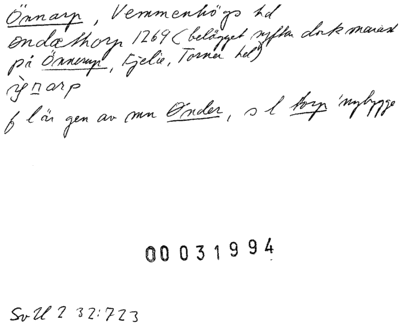 Önnarp, Vemmenhögs hd
ondæthorp 1269 (belägget syftar dock
på Önnerup, Fjelie, Torna hd)
f l är gen av mn Onder, s l torp 'nybygge
00031994
SOU 2 32:723